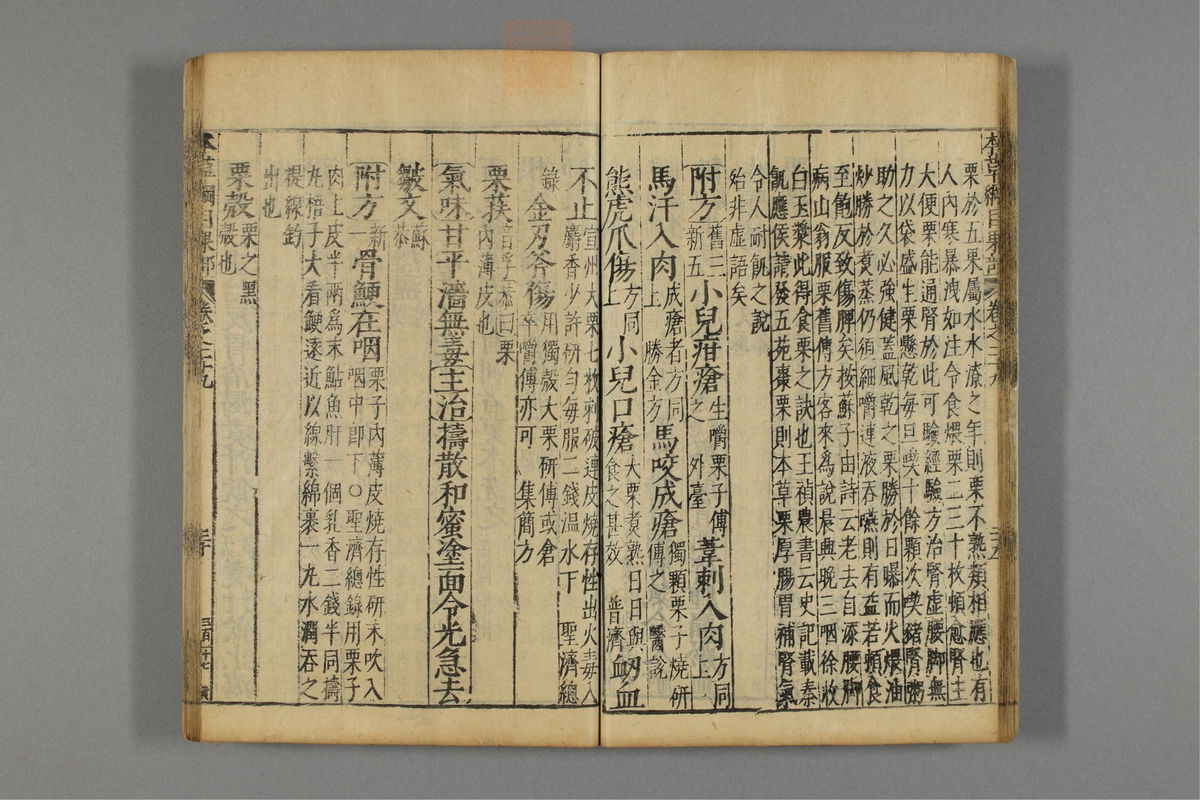 本草綱目果部 卷之二十九
栗於五果屬水水潦之年則栗不熟類相應也有
人內寒暴洩如注令食煨栗二三十枚頓愈腎主
大便栗能通腎於此可驗經驗方治腎虛腰脚無
力以袋盛生栗懸乾每旦喫十餘顆次喫豬腎粥
助之久必強健蓋風乾之栗勝於日曝而火煨油
炒勝於煮蒸仍須細嚼連液吞嚥則有益若頓食
至飽反致傷脾矣按蘇子由詩云老去自添腰脚
病山翁服栗舊傳方客來為說晨興晚三咽徐收
白玉漿此得食栗之訣也王禎農書云史記載秦
飢應侯請發五苑棗栗則本草栗厚腸胃補腎氣
令人耐飢之說
殆非虛語矣
附方舊三新五小兒疳瘡生嚼栗子傅之 外臺葦刺入肉方同上
馬汗入肉成瘡者方同上 勝金方馬咬成瘡獨顆栗子燒研傅之 醫說
熊虎爪傷方同上小兒口瘡大栗煮熟日日與食之甚效 普濟衂血
不止宣州大栗七枚刺破連皮燒存性出火毒入
麝香少許研勻每服二錢温水下 聖濟總
錄金刃斧傷用獨殼大栗研傅或倉
卒嚼傅亦可 集簡方
栗荴音孚恭曰栗內薄皮也
氣味甘平濇無毒主治擣散和蜜塗面令光急去
皺文蘇恭
附方新一骨鯁在咽栗子內薄皮燒存性研末吹入
咽中卽下○聖濟總錄用栗子
肉上皮半兩爲末鮎魚肝一個乳香二錢半同擣
丸梧子大看鯁遠近以線繫綿裹一丸水潤吞之
提線釣
出也
栗殼栗之黑殼也
本草綱目果部 卷之二十九